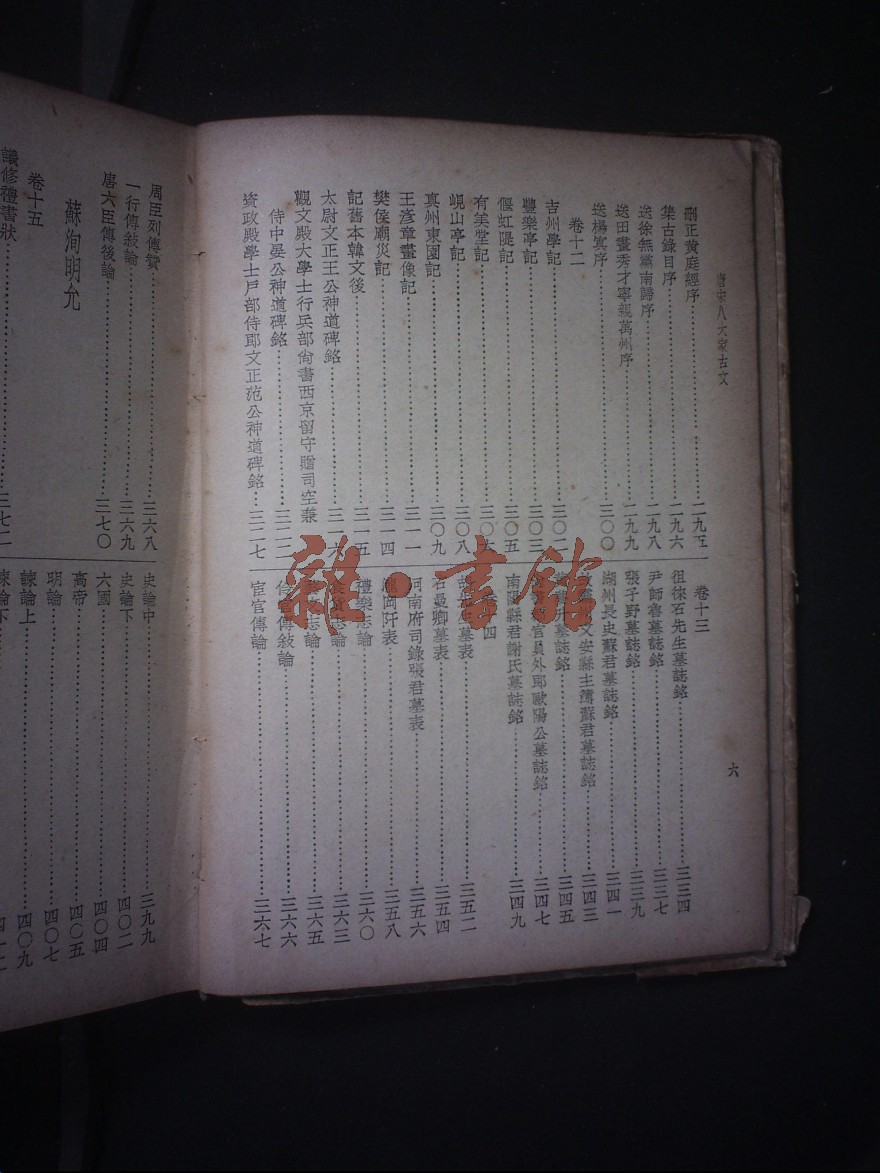 唐宋八大家古文
六
刪正黃庭經序……二九五
集古錄目序……二九六
送徐無黨南歸序……二九八
送田畫秀才寧親萬州序……二九九
送楊寘序……三〇〇
卷十二
吉州學記……三〇二
豐樂亭記……三〇三
偃虹隄記……三〇五
有美堂記……三〇六
峴山亭記……三〇八
真州東園記……三〇九
王彥章畫像記……三一一
樊侯廟災記……三一四
記舊本韓文後……三一五
太尉文正王公神道碑銘……三一六
觀文殿大學士行兵部尚書西京留守贈司空兼
侍中晏公神道碑銘……三二二
資政殿學士戶部侍郎文正范公神道碑銘……三二七
卷十三
徂徠石先生墓誌銘……三三四
尹師魯墓誌銘……三三七
張子野墓誌銘……三三九
湖州長史蘇君墓誌銘……三四一
文安縣主簿蘇君墓誌銘……三四三
墓誌銘……三四五
員外郎歐陽公墓誌銘……三四七
南陽縣君謝氏墓誌銘……三四九
四
墓表……三五二
石曼卿墓表……三五四
河南府司錄張君墓表……三五六
岡阡表……三五八
禮樂志論……三六〇
志論……三六三
志論……三六五
伶官傳敘論……三六六
宦官傳論……三六七
周臣列傳贊……三六八
一行傳敘論……三六九
唐六臣傳後論……三七〇
卷十五
蘇洵明允
議修禮書狀……三七二
史論中……三九九
史論下……四〇二
六國……四〇四
高帝……四〇五
明論……四〇七
諫論上……四〇九
諫論下
雜·書館